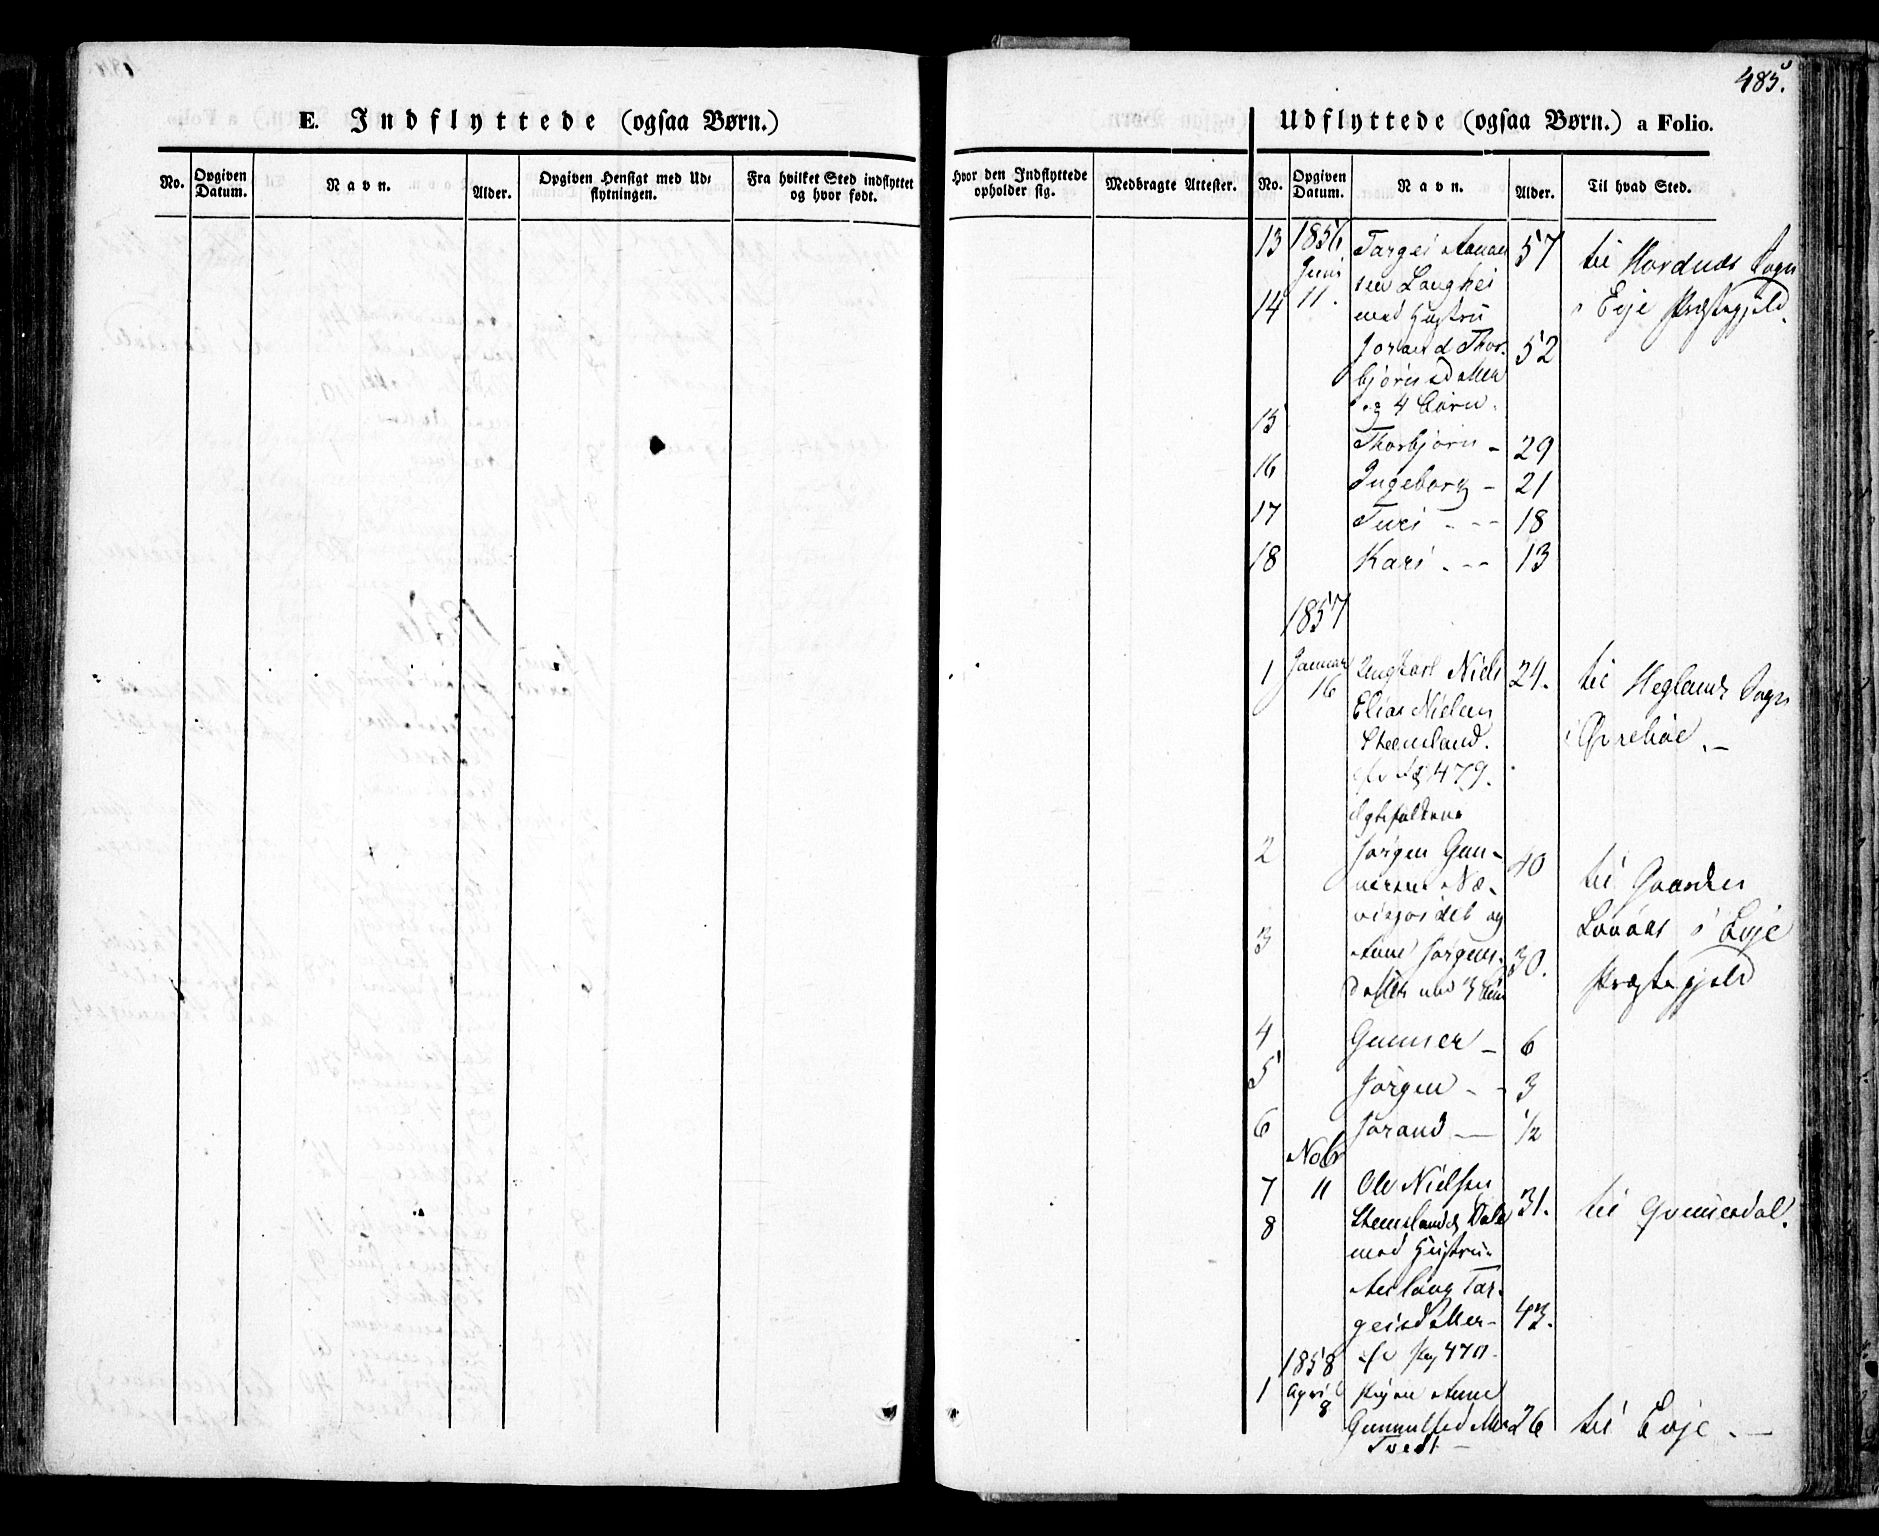 485.
E. Indflyttede (ogsaa Børn.)
Udflyttede (ogsaa Børn.) a Folio.
No. Opgiven Datum. Navn. Alder. Opgiven Hensigt med Udflytningen. Fra hvilket Sted indflyttet og hvor født.
Hvor den Indflyttede opholder sig. Medbragte Attester. No. Opgiven Datum. Navn. Alder. Til hvad Sted.
13 1856 Targei Aanon 57 til Hordnæs Sogn
Juni sen Langhei
14 11. med Hustru i Evje Præstegjeld.
Jorand Thor- 52
bjørnsd
og 4 Børn.
15 Thorbjørn - 29
16 Ingeborg - 21
17 Turi - - - 18
18 Kari - - - 13
1857
1 Januar Ungkarl Niels 24. til Heglands Sogn
16 Elias Nielsen
Steensland. i Øvrebøe. -
479.
Ægtefolkene
2 Jørgen Gun- 40 til Gaarden
versen
og i Evje
3 Anne Jørgens- 30.
datter med 3 Børn Præstegjeld
4 Gunner - 6
5 Jørgen - - 3
6 Jorand - 1/2
Nobr
7 11 Ole Nielsen 31. til
8
med Hustru
Aslaug Tar-
geisd 43.
1858
1 April Pigen Anne
8 Gunnulfsd 26 til Evje. -
Tvedt -